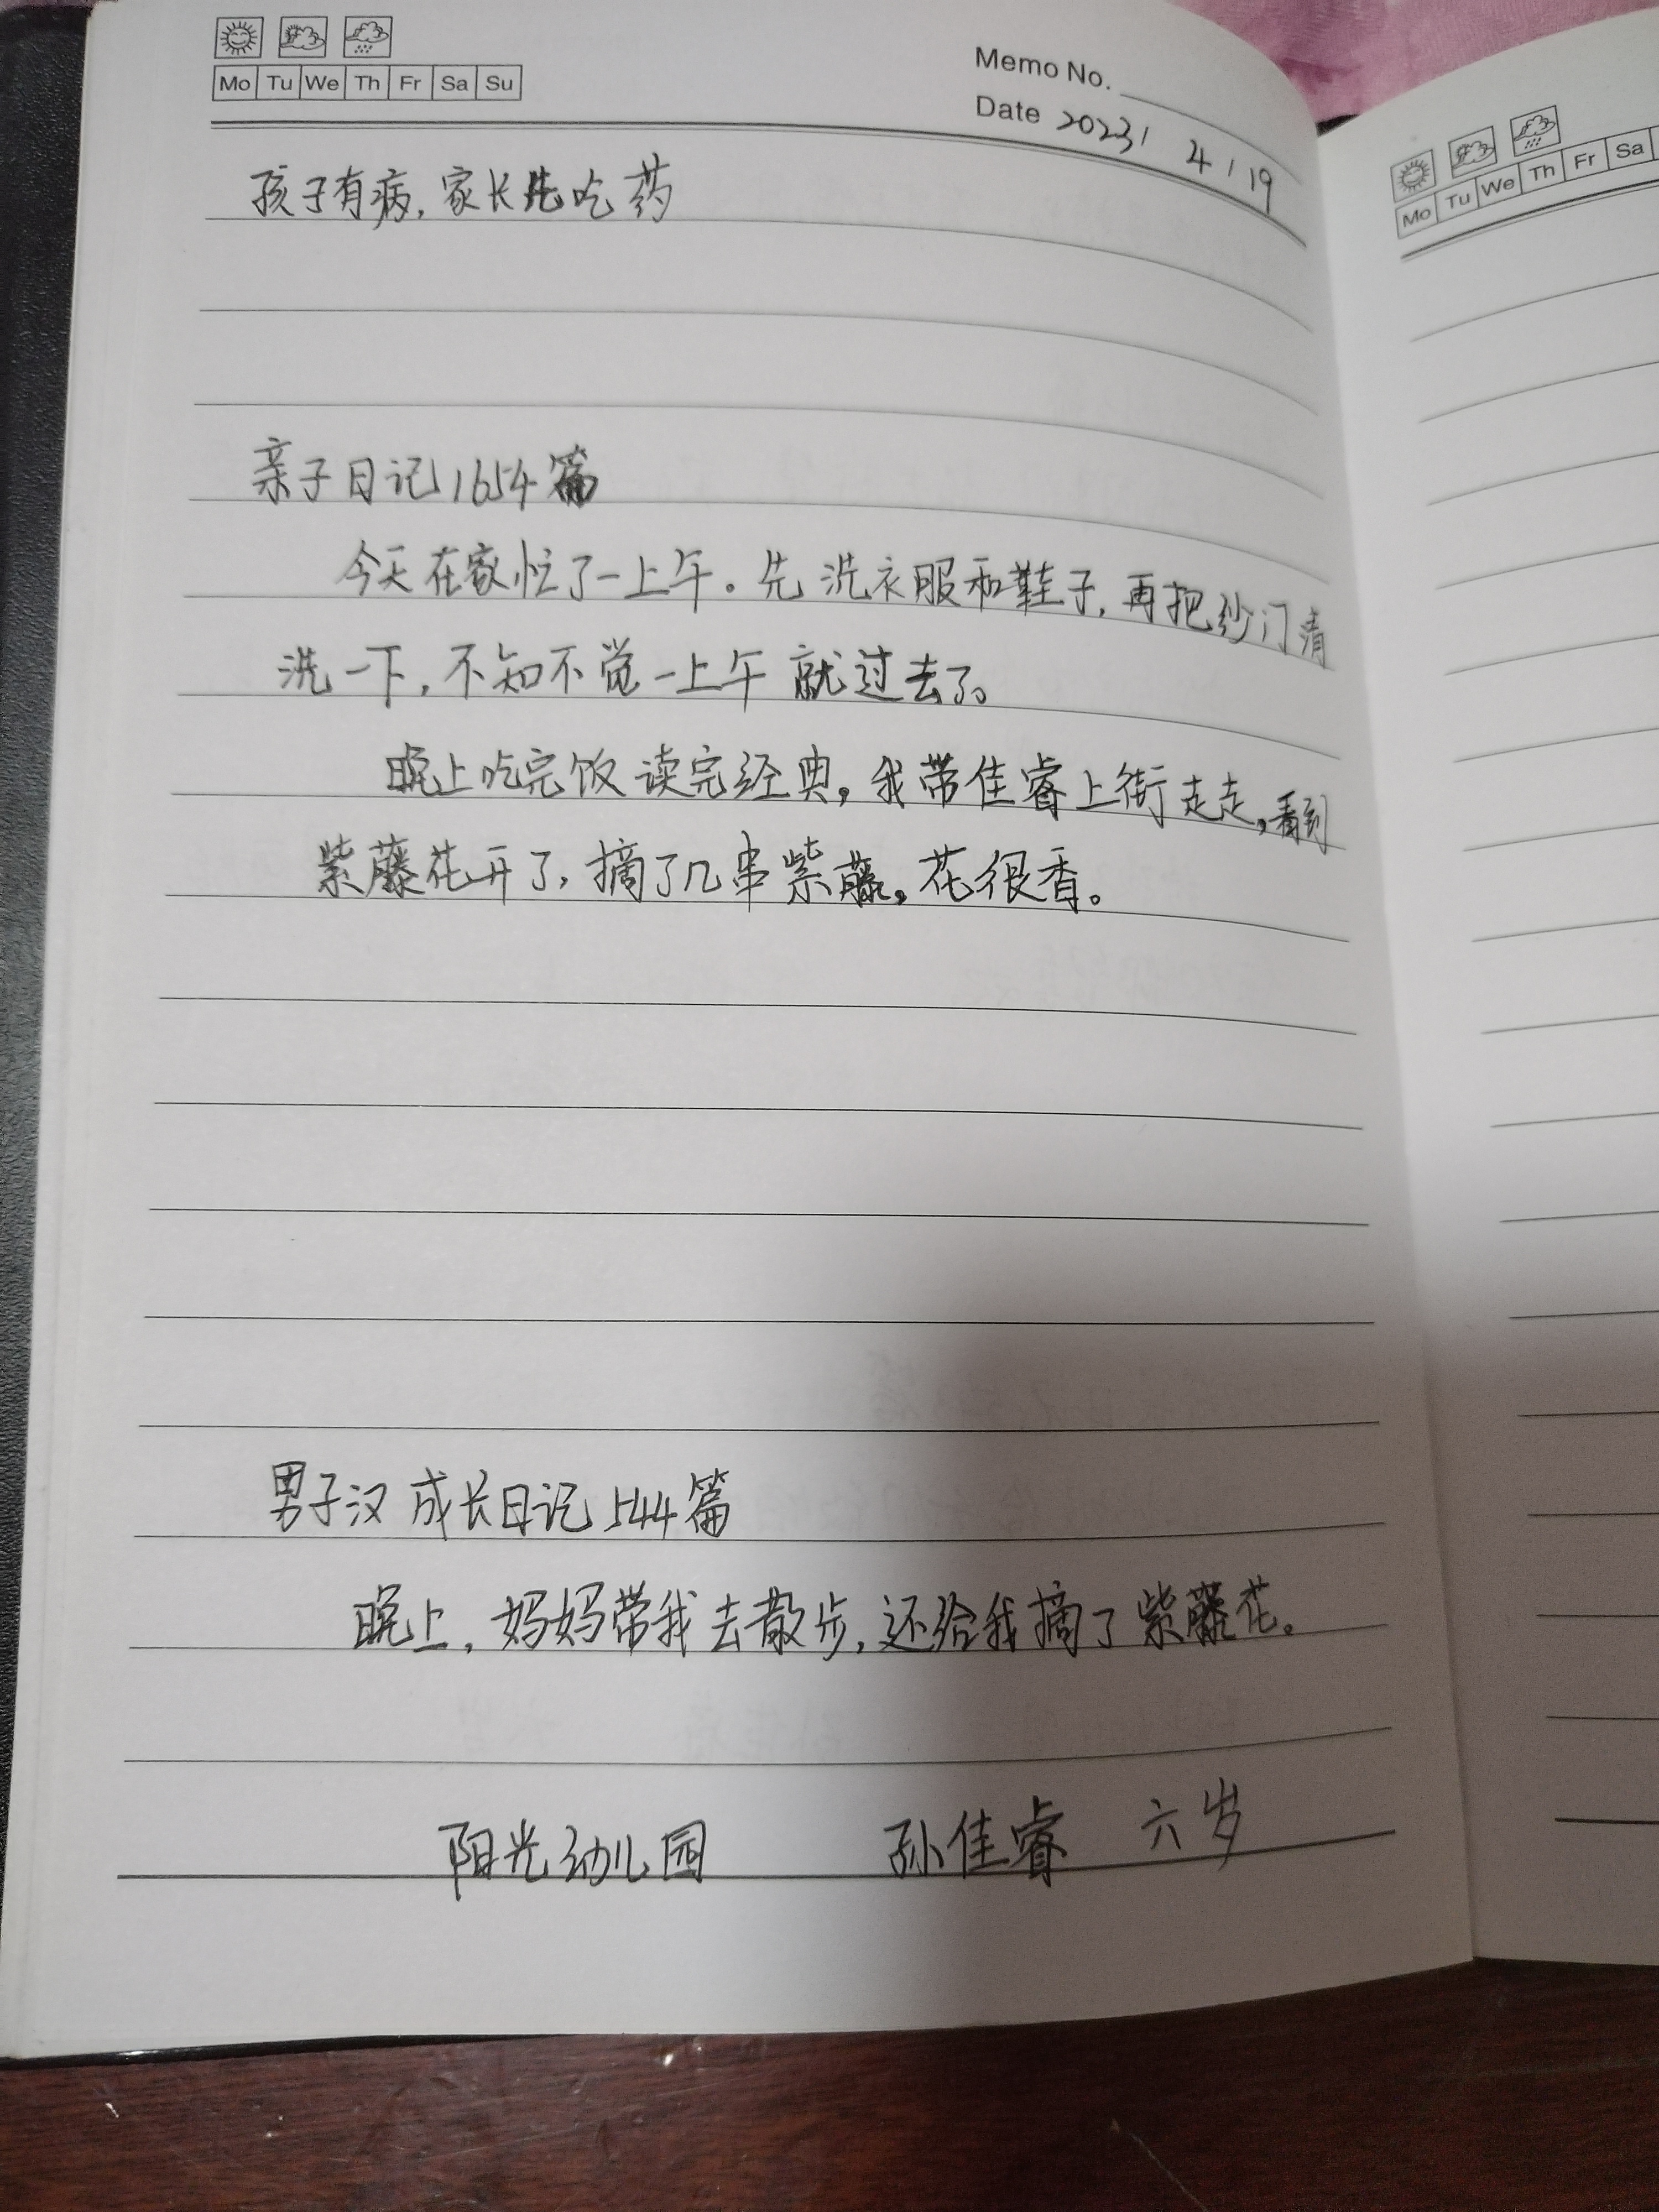 Mo Tu We Th Fr Sa Su
Memo No.
Date 2023 / 4 / 19
孩子有病，家长先吃药
亲子日记1654篇
今天在家忙了一上午。先洗衣服和鞋子，再把纱门清
洗一下，不知不觉一上午就过去了。
晚上吃完饭读完经典，我带佳睿上街走走，看到
紫藤花开了，摘了几串紫藤，花很香。
男子汉成长日记544篇
晚上，妈妈带我去散步，还给我摘了紫藤花。
阳光幼儿园 孙佳睿 六岁
Mo Tu We Th Fr Sa